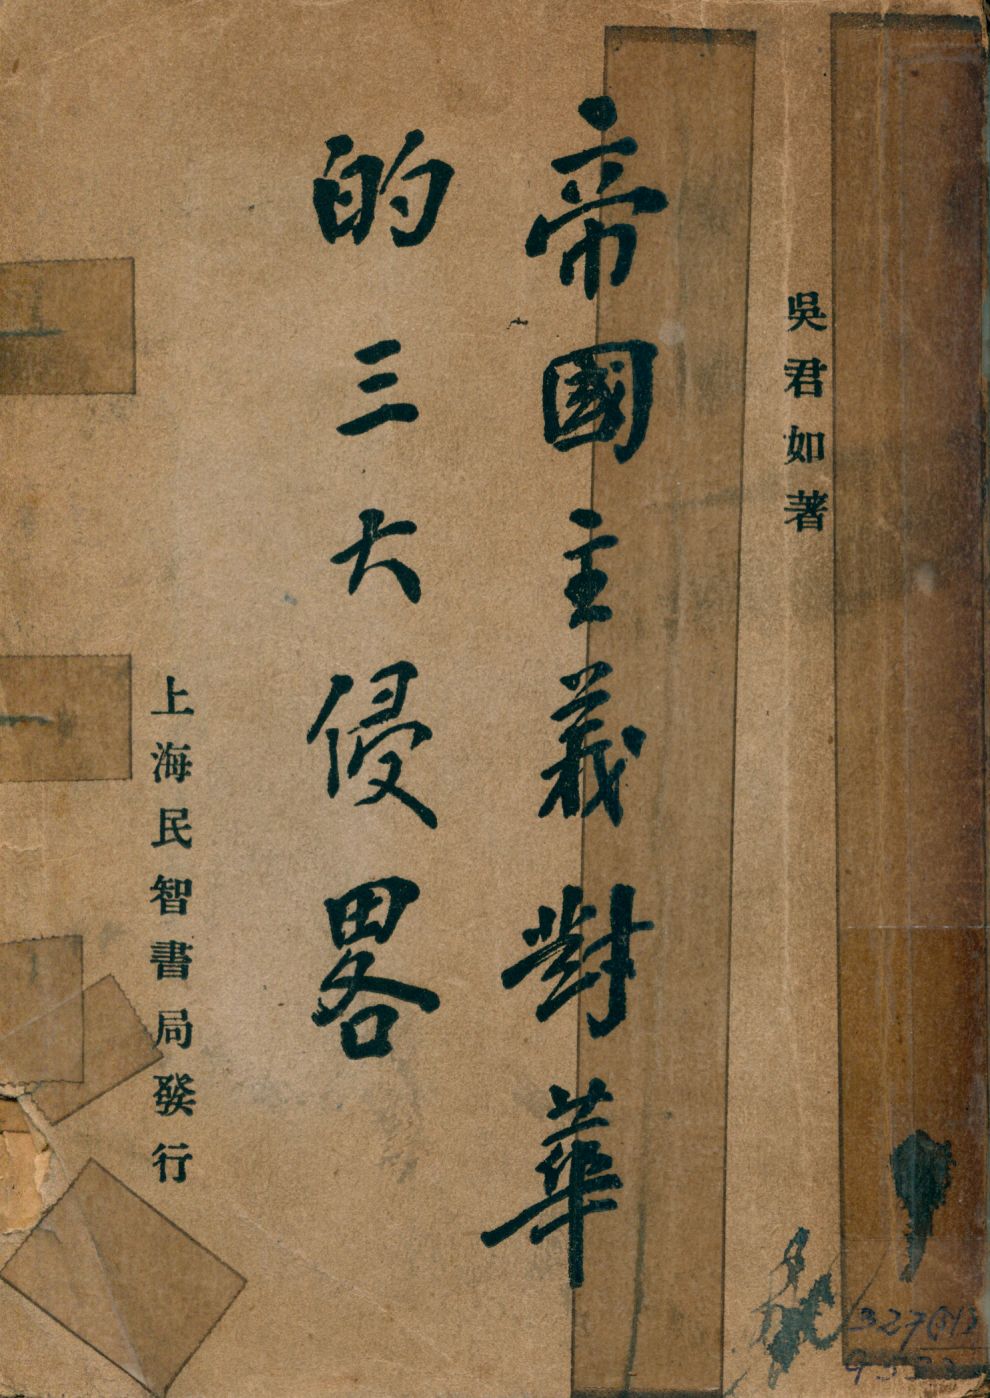 吳君如著
帝國主義對華
的三大侵畧
上海民智書局發行